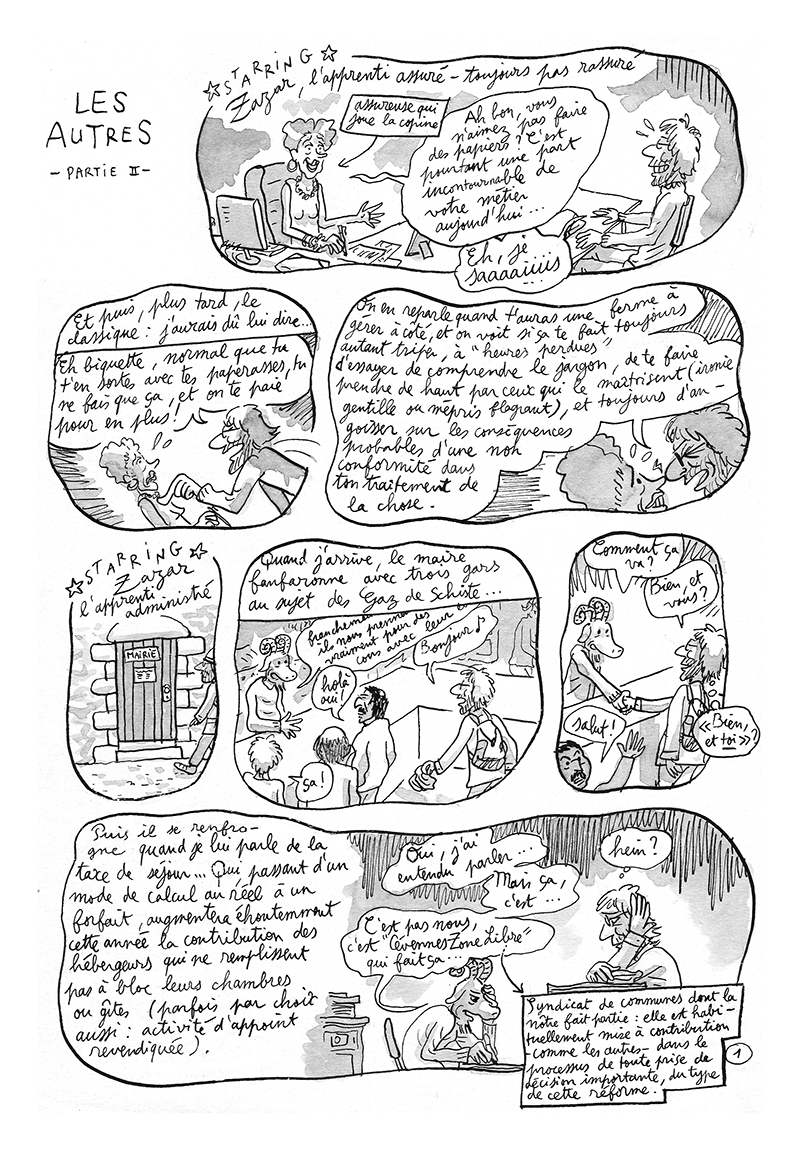 LES
AUTRES
- PARTIE II -
☆STARRING☆
Zazar, l'apprenti assuré - toujours pas rassuré
assureuse qui
joue la copine
Ah bon, vous
n'aimez pas faire
des papiers ? C'est
pourtant une part
incontournable de
votre métier
aujourd'hui...
Eh, je
saaaaiiiis
Et puis, plus tard, le
classique : j'aurais dû lui dire...
Eh biquette, normal que tu
t'en sortes avec tes paperasses, tu
ne fais que ça, et on te paie
pour en plus !
On en reparle quand t'auras une ferme à
gérer à côté, et on voit si ça te fait toujours
autant triper, à "heures perdues"
d'essayer de comprendre le jargon, de te faire
prendre de haut par ceux qui le maîtrisent (ironie
gentille ou mépris flagrant), et toujours d'an-
goisser sur les conséquences
probables d'une non
conformité dans
ton traitement de
la chose.
☆STARRING☆
Zazar
l'apprenti
administré
MAIRIE
Quand j'arrive, le maire
fanfaronne avec trois gars
au sujet des Gaz de Schiste...
franchement
ils nous prennent
vraiment pour des
cons avec leur
Bonjour♪
holà
oui !
ça !
Comment ça
va ?
Bien, et
vous ?
Salut !
«Bien,
et toi» ?
Puis il se renfro-
gne quand je lui parle de la
taxe de séjour... Qui, passant d'un
mode de calcul au réel à un
forfait, augmentera éhoutemment
cette année la contribution des
hébergeurs qui ne remplissent
pas à bloc leurs chambres
ou gîtes (parfois par choix
aussi : activité d'appoint
revendiquée).
Oui, j'ai
entendu parler...
Mais ça,
c'est...
hein ?
C'est pas nous,
c'est "Cévennes Zone Libre"
qui fait ça...
Syndicat de communes dont la
nôtre fait partie : elle est habi-
tuellement mise à contribution
- comme les autres - dans le
processus de toute prise de
décision importante, du type
de cette réforme.
1